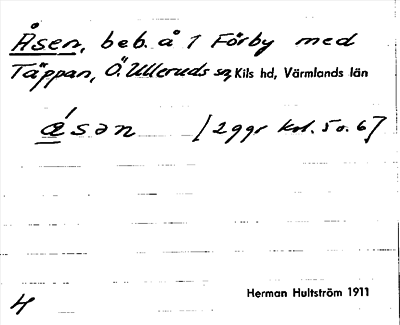 Åsen, beb. å 1 Förby med
Täppan, Ö. Ulleruds sn, Kils hd, Värmlands län
ǻsən [2 ggr kol. 5 o. 6]
4
Herman Hultström 1911